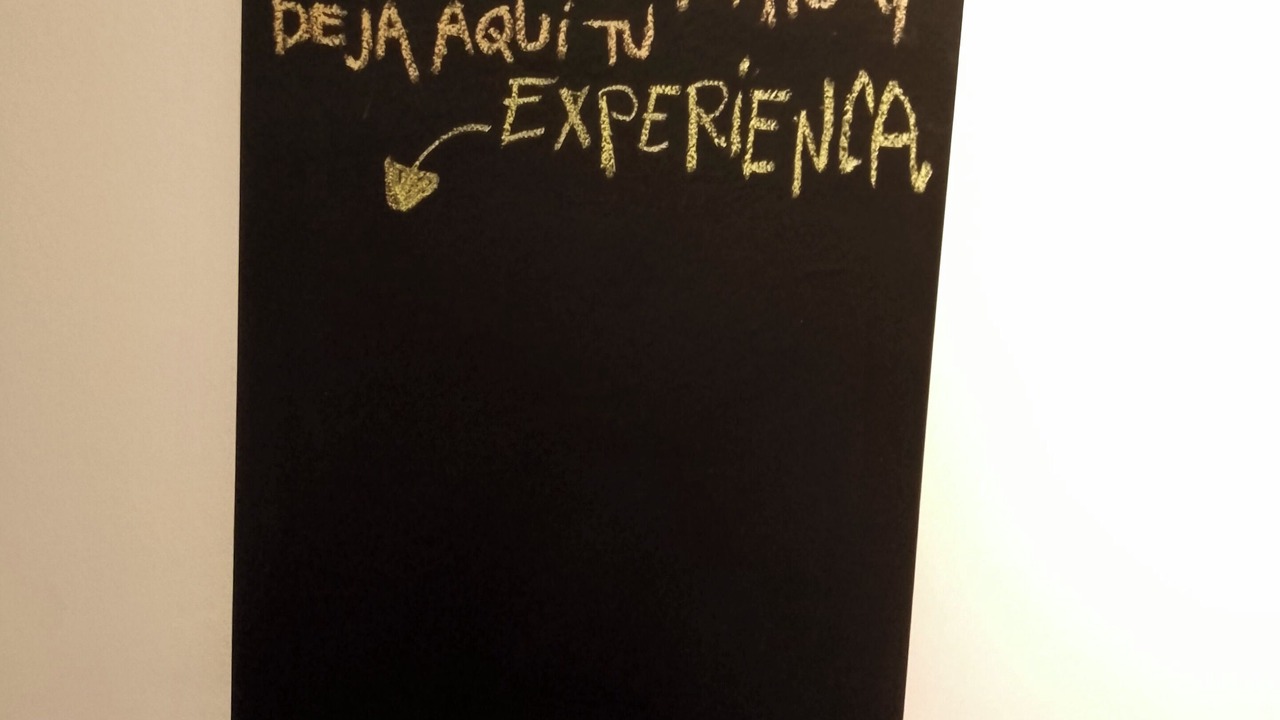 DEJA AQUÍ TU
EXPERIENCA